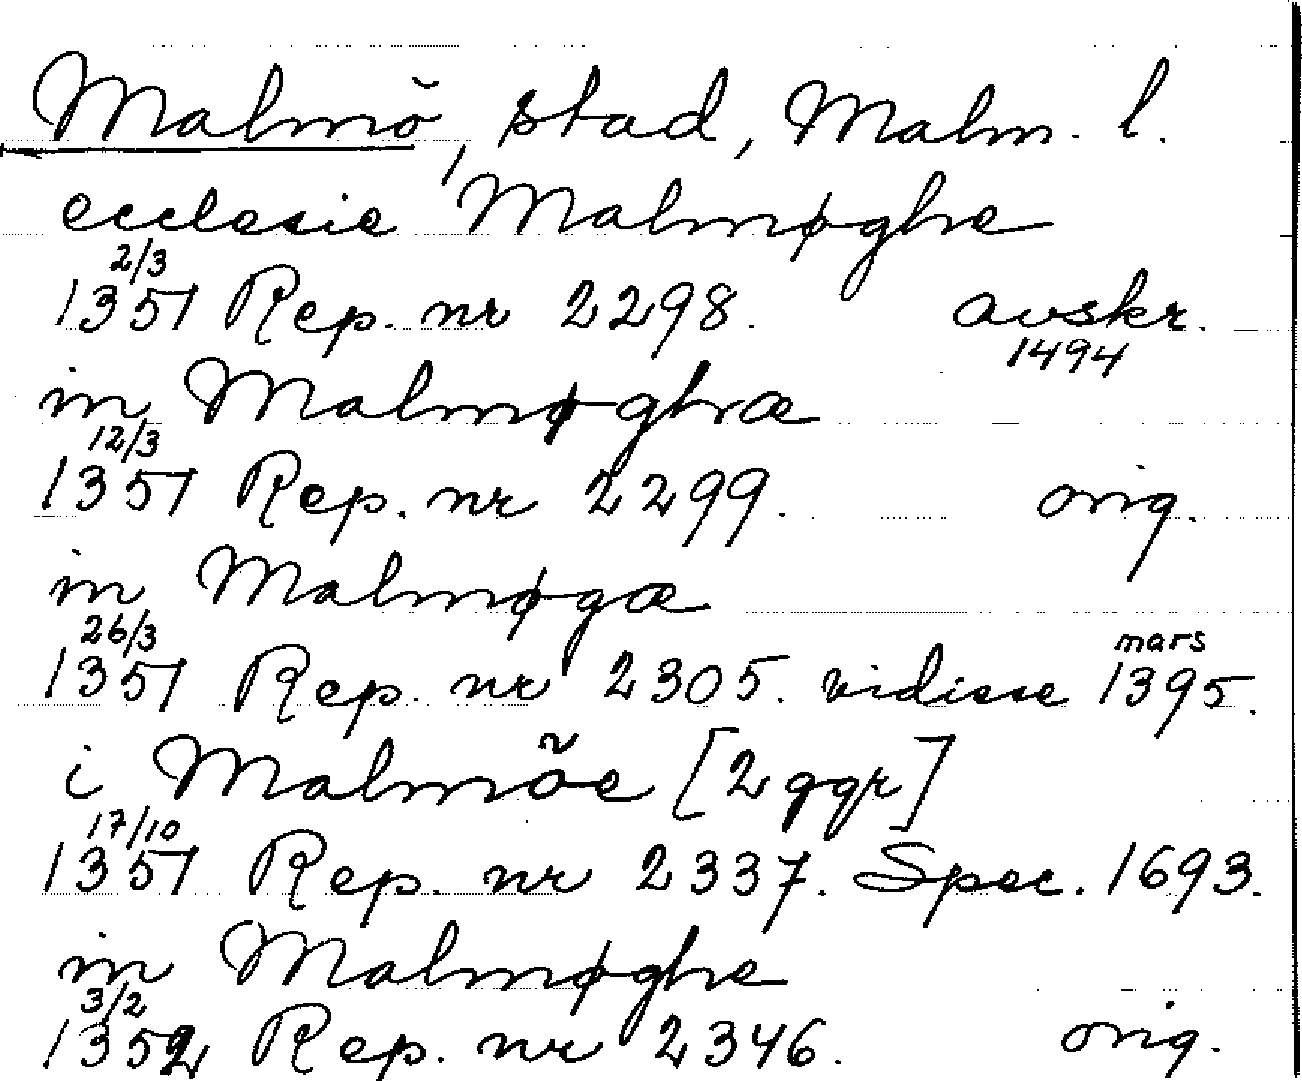 Malmö, stad, Malm. l.
ecclesie Malmøghe
2/3
1351 Rep. nr 2298. avskr.
1494
in Malmøghæ
12/3
1351 Rep. nr 2299. orig.
in Malmøgæ
26/3 mars
1351 Rep. nr 2305. vidisse 1395.
i Malmõe [2 ggr]
17/10
1351 Rep. nr 2337. Spec. 1693.
in Malmøghe
3/2
1352 Rep. nr 2346. orig.